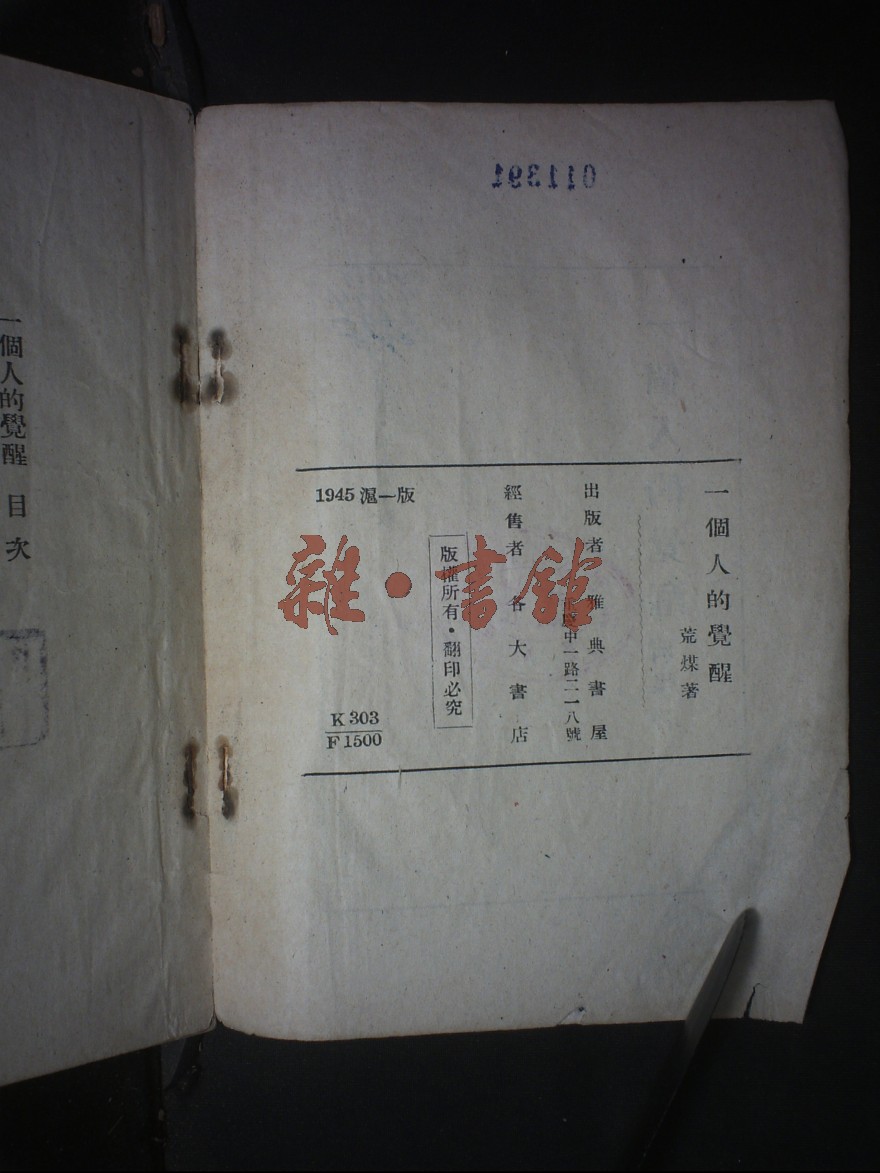 011391
一個人的覺醒
荒煤著
出版者 雅典書屋
中一路二一八號
經售者 各大書店
版權所有・翻印必究
1945 滬一版
K 303
F 1500
一個人的覺醒 目次
雜・書館